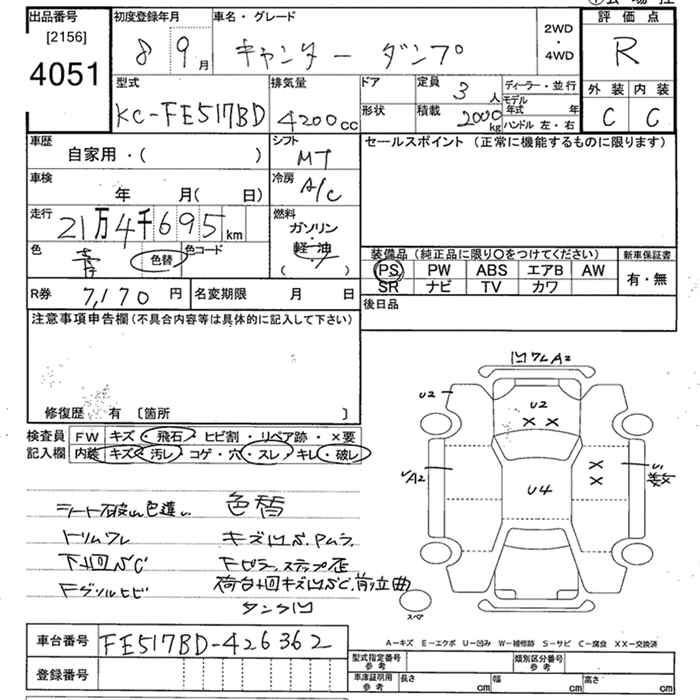 出品番号
[2156]
4051
初度登録年月
8 9月
車名・グレード
キャンター ダンプ
2WD
・
4WD
評価点
R
外装 内装
C C
型式
KC-FE517BD
排気量
4200cc
ドア
形状
定員 3人
積載 2000kg
ディーラー・並行
モデル年式 年
ハンドル 左・右
車歴
自家用・( )
シフト
MT
セールスポイント (正常に機能するものに限ります)
車検
年 月( 日)
冷房
A/C
走行
21万4千695km
燃料
ガソリン
軽・油
( )
色
青 色替
色コード
装備品 (純正品に限り〇をつけてください)
PS PW ABS エアB AW
SR ナビ TV カワ
新車保証書
有・無
R券 7,170円
名変期限 月 日
後日品
注意事項申告欄 (不具合内容等は具体的に記入して下さい)
修復歴 有 [箇所 ]
検査員記入欄
FW キズ・飛石・ヒビ割・リペア跡・×要
内装 キズ・汚レ・コゲ・穴・スレ・キレ・破レ
シート破レ色違い
トリムワレ
下回サビC
Fグリルヒビ
色替
キズ凹サビ、Pムラ
Fピラー、ステップ歪
荷台廻キズ凹サビC、前立曲
タンク凹
凹ワレA2
U2
U2
××
A2
U4
×
×
U1
スペア
A－キズ E－エクボ U－凹み W－補修跡 S－サビ C－腐食 XX－交換済
車台番号 FE517BD-426362
登録番号
型式指定番号 参考
類別区分番号 参考
車庫証明用 参考
長さ cm
幅 cm
高さ cm